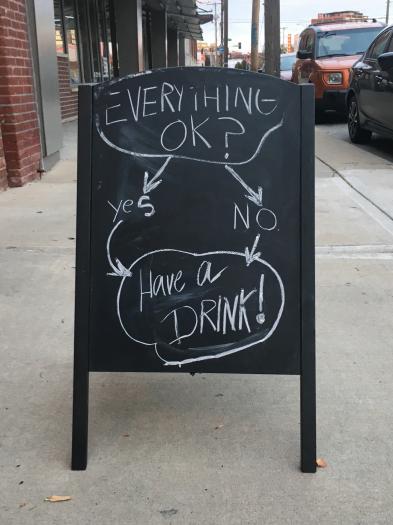 EVERYTHING
OK?
yes NO.
Have a
DRINK!